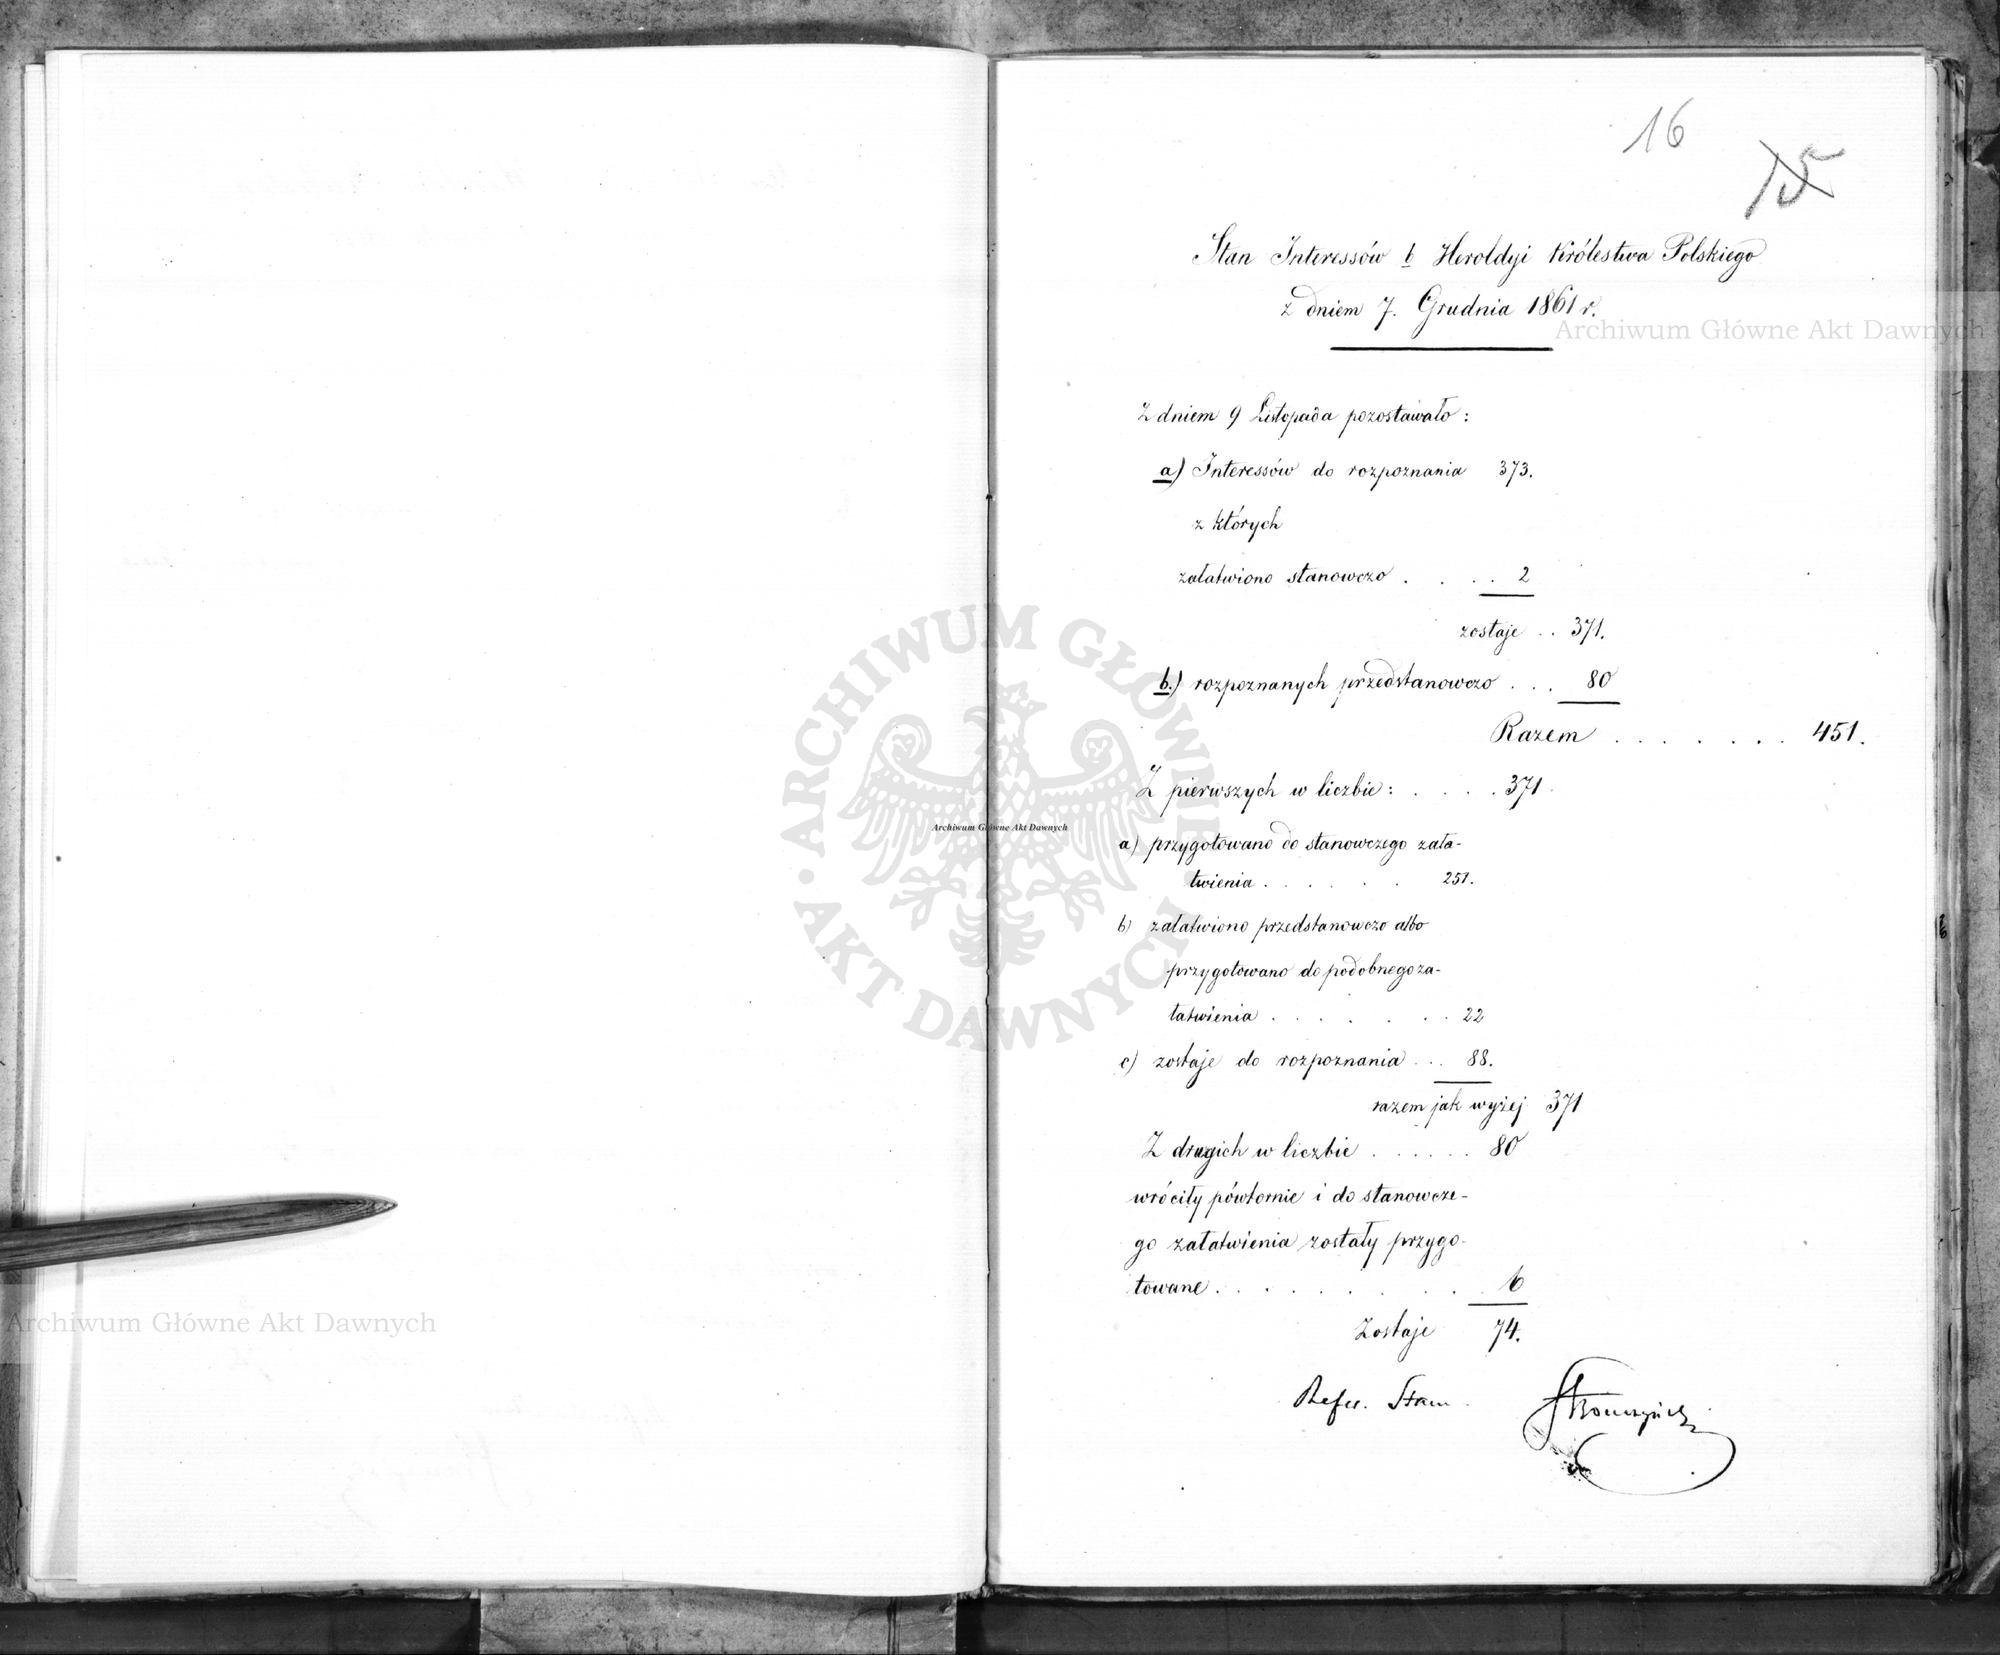 16
15
Stan Interessów b Heroldyi Królestwa Polskiego
z dniem 7. Grudnia 1861 r.
Archiwum Główne Akt Dawnych
Z dniem 9 Listopada pozostawało:
a) Interessów do rozpoznania 373.
z których
załatwiono stanowczo . . . . 2
zostaje . . 371.
b.) rozpoznanych przedstanowczo . . . 80
Razem . . . . . . . 451.
Z pierwszych w liczbie: . . . . 371
a) przygotowano do stanowczego zała-
twienia . . . . . . 251.
b) załatwiono przedstanowczo albo
przygotowano do podobnego za-
łatwienia . . . . . . . 22
c) zostaje do rozpoznania . . . 88.
razem jak wyżej 371
Z drugich w liczbie . . . . . . 80
wróciły pówtornie i do stanowcze-
go załatwienia zostały przygo-
towane . . . . . . . . . 6
Zostaje 74.
Refer. Stanu
Stronczyński
ARCHIWUM GŁÓWNE AKT DAWNYCH
Archiwum Główne Akt Dawnych
Archiwum Główne Akt Dawnych